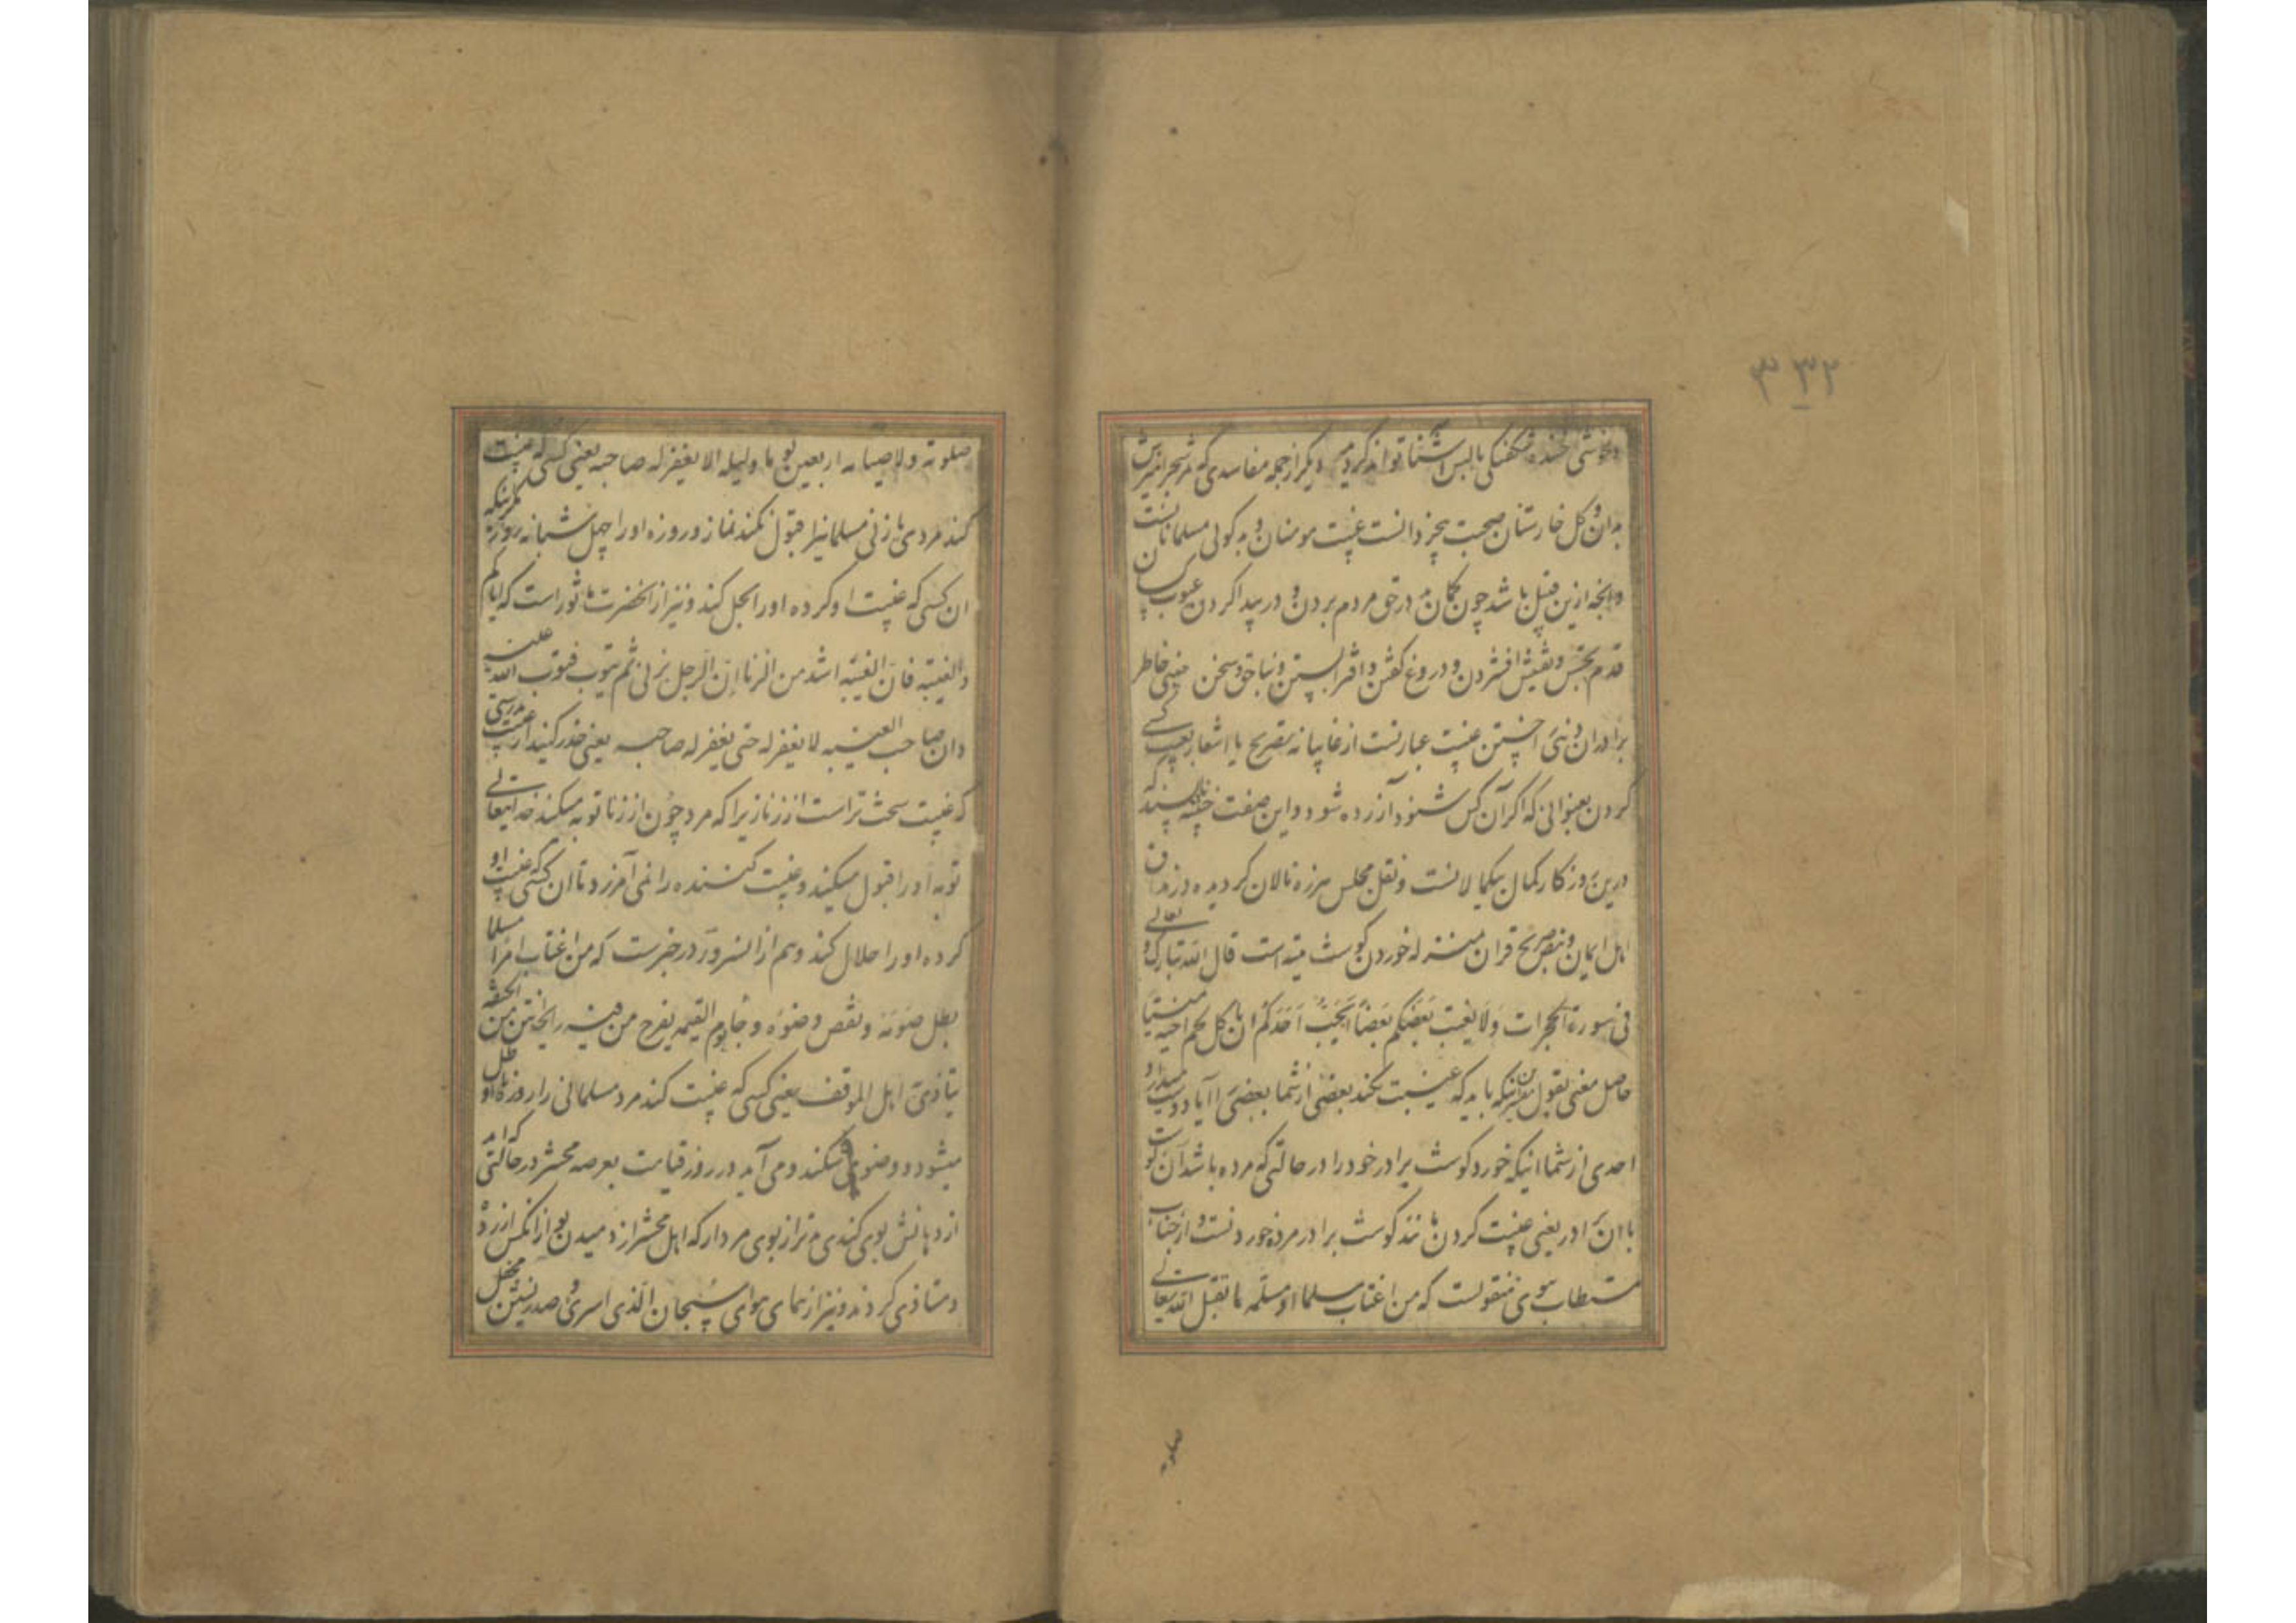 ۳۳۲
و بخوشی خنده شکفتگی بالب آشنا تواند کرد دیگر از جمله مفاسدی که مثمر شجر
بدان و گل خارستان صحبت بجز دانست غیبت مومنان و بدگوئی مسلمانانست
و آنچه ازین قبیل باشد چون گمان بد در حق مردم بردن و در پیدا کردن عیوب کسان
قدم تجسس و تفتیش افشردن و دروغ گفتن و افترا بستن و بناحق و سخن خاطر
برادران دینی خستن غیبت عبارتست از غایبانه بتصریح یا اشعار بعیب کسی
کردن بعنوانی که اگر آن کس شنود آزرده شود و این صفت خبیثه ناپسند که
درین روزگار کمال بیکمالانست و نقل مجلس هرزه نالان گردیده در مذاق
اهل ایمان و بتصریح قران بمنزله خوردن گوشت میته است قال الله تبارک و تعالی
فی سورة الحجرات وَلَا یغتب بَعضکم بَعضاً أیُحبّ اَحَدکُم ان یاکل لحم اخیه میتا
حاصل معنی بقول مفسرین اینکه باید که غیبت نکند بعضی از شما بعضی را آیا دوست میدارد
احدی از شما اینکه خورد گوشت برادر خود را در حالتی که مرده باشد آن گوشت
یا ان برادر یعنی غیبت کردن مانند گوشت برادر مرده خوردنست و از جناب
مستطاب نبوی منقولست که من اغتاب مسلما او مسلمة ما تقبل الله تعالی
صلوته
صلوته ولا صیامه اربعین یوما و لیله الا یغفر له صاحبه یعنی کسی که غیبت
کند مردی یا زنی مسلمانیرا قبول نکند نماز و روزه او را چهل شبانه روز مگر اینکه
ان کسی که غیبت او کرده او را بحل کند و نیز از انحضرت ماثور است که ایاکم
و الغیبة فانّ الغیبه اشد من الزنا انّ الرجل یزنی ثم یتوب فیتوب الله علیه
وان صاحب الغیبه لا یغفر له حتی یغفر له صاحبه یعنی حذر کنید از غیبت بدرستی
که غیبت سخت تر است از زنا زیرا که مرد چون از زنا توبه میکند خدایتعالی
توبه او را قبول میکند و غیبت کننده را نمی آمرزد تا ان کسی که غیبت او
کرده او را حلال کند و هم از انسرور در خبرست که من اغتاب امرأ مسلما
بطل صومه و نقص وضوءه و جا یوم القیمه یفوح من فیه رایحة انتن من الجیفه
یتاذی اهل الموقف یعنی کسی که غیبت کند مرد مسلمانی را روزه او باطل
میشود و وضوی او میشکند و می آید در روز قیامت بعرصه محشر در حالتی که آید
از دهانش بوی گندی بدتر از بوی مردار که اهل محشر از دمیدن بو از انکس آزرده
و متاذی گردند و نیز از همای هوای سُبحان الّذی اسری و صدرنشین محفل